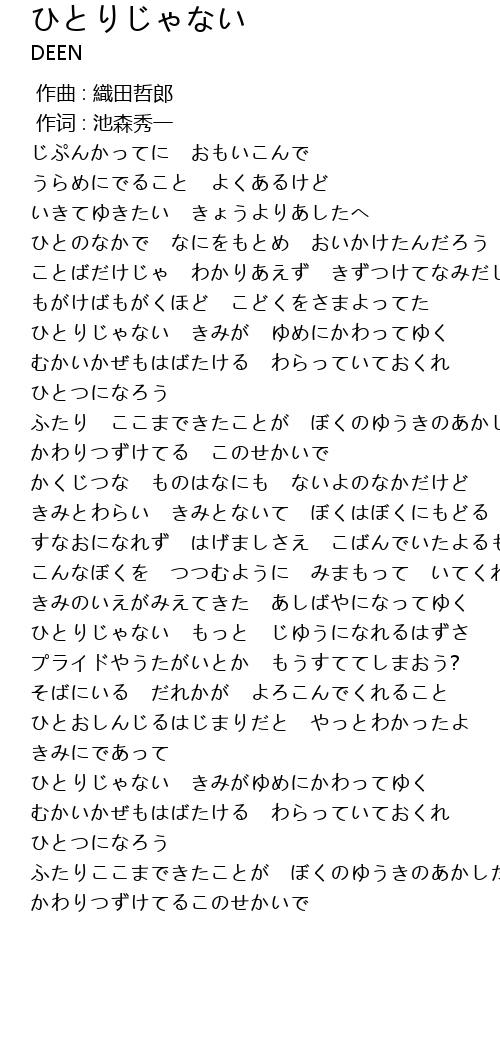 ひとりじゃない
DEEN
作曲 : 織田哲郎
作词 : 池森秀一
じぶんかってに　おもいこんで
うらめにでること　よくあるけど
いきてゆきたい　きょうよりあしたへ
ひとのなかで　なにをもとめ　おいかけたんだろう
ことばだけじゃ　わかりあえず　きずつけてなみだし
もがけばもがくほど　こどくをさまよってた
ひとりじゃない　きみが　ゆめにかわってゆく
むかいかぜもはばたける　わらっていておくれ
ひとつになろう
ふたり　ここまできたことが　ぼくのゆうきのあかし
かわりつずけてる　このせかいで
かくじつな　ものはなにも　ないよのなかだけど
きみとわらい　きみとないて　ぼくはぼくにもどる
すなおになれず　はげましさえ　こばんでいたよるも
こんなぼくを　つつむように　みまもって　いてくれ
きみのいえがみえてきた　あしばやになってゆく
ひとりじゃない　もっと　じゆうになれるはずさ
プライドやうたがいとか　もうすててしまおう?
そばにいる　だれかが　よろこんでくれること
ひとおしんじるはじまりだと　やっとわかったよ
きみにであって
ひとりじゃない　きみがゆめにかわってゆく
むかいかぜもはばたける　わらっていておくれ
ひとつになろう
ふたりここまできたことが　ぼくのゆうきのあかした
かわりつずけてるこのせかいで